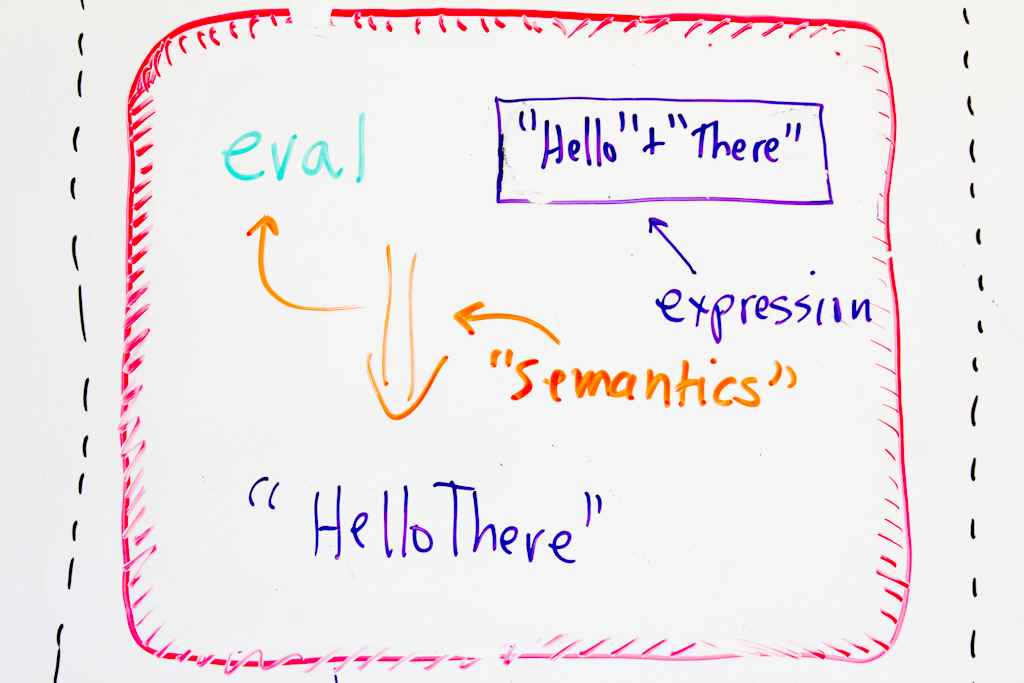 eval
"Hello"+"There"
expression
"Semantics"
"HelloThere"